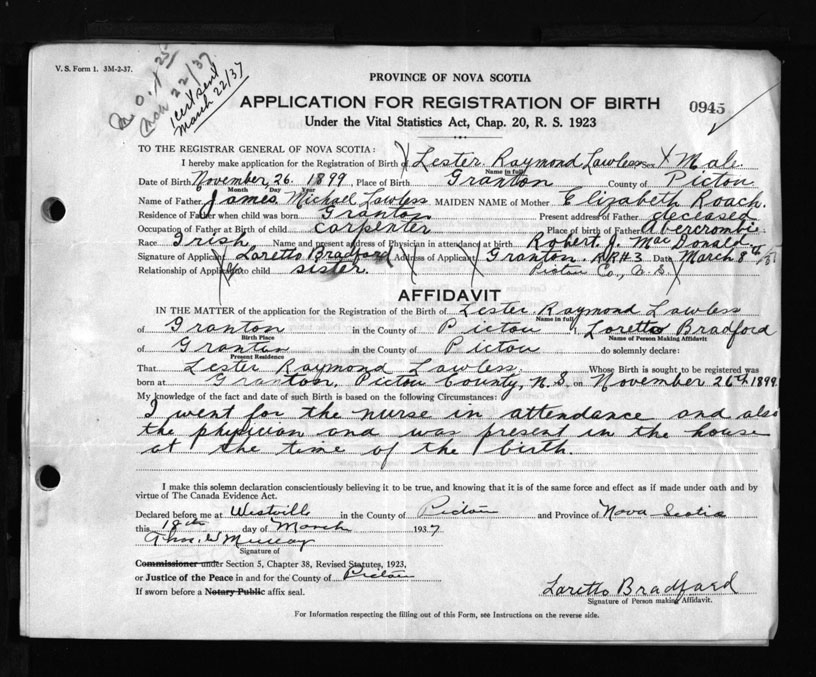 V. S. Form 1. 3M-2-37.
M. O. 1 25
Mch 22/37
1 cert sent
March 22/37
PROVINCE OF NOVA SCOTIA
APPLICATION FOR REGISTRATION OF BIRTH
0945
Under the Vital Statistics Act, Chap. 20, R. S. 1923
TO THE REGISTRAR GENERAL OF NOVA SCOTIA:
I hereby make application for the Registration of Birth of Lester Raymond Lawless Sex X Male
Name in full
Date of Birth November 26. 1899, Place of Birth Granton County of Pictou
Month Day Year
Name of Father, James Michael Lawless MAIDEN NAME of Mother Elizabeth Roach.
Residence of Father when child was born Granton Present address of Father deceased
Occupation of Father at Birth of child carpenter Place of birth of Father Abercrombie
Race Irish Name and present address of Physician in attendance at birth Robert J. MacDonald.
Signature of Applicant Loretto Bradford Address of Applicant Granton. R.R#3 Date March 8th
Relationship of Applicant to child sister. Pictou Co., N.S.
AFFIDAVIT
IN THE MATTER of the application for the Registration of the Birth of Lester Raymond Lawless
Name in full
of Granton in the County of Pictou I, Loretto Bradford
Birth Place Name of Person Making Affidavit
of Granton in the County of Pictou do solemnly declare:
Present Residence
That Lester Raymond Lawless, Whose Birth is sought to be registered was
born at Granton, Pictou County, N.S. on November 26th 1899
My knowledge of the fact and date of such Birth is based on the following Circumstances:
I went for the nurse in attendance and also
the physician and was present in the house
at the time of the birth.
I make this solemn declaration conscientiously believing it to be true, and knowing that it is of the same force and effect as if made under oath and by
virtue of The Canada Evidence Act.
Declared before me at Westville in the County of Pictou and Province of Nova Scotia
this 18th day of March 1937
Thos. W Murray
Signature of
Commissioner under Section 5, Chapter 38, Revised Statutes, 1923,
or Justice of the Peace in and for the County of Pictou
If sworn before a Notary Public affix seal.
Loretto Bradford
Signature of Person making Affidavit.
For Information respecting the filling out of this Form, see Instructions on the reverse side.